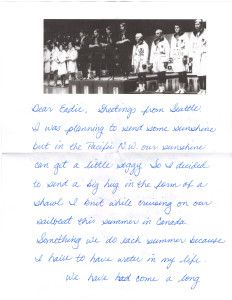 Dear Eadie, Greetings from Seattle.
I was planning to send some sunshine
but in the Pacific N.W. our sunshine
can get a little soggy. So I decided
to send a big hug in the form of a
shawl I knit while cruising on our
sailboat this summer in Canada.
Something we do each summer because
I have to have water in my life.
We have had come a long